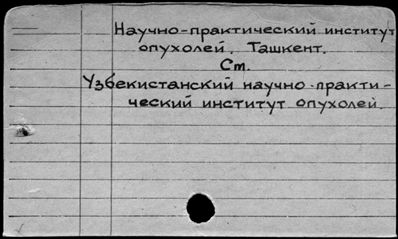 Научно-практический институт
опухолей. Ташкент.
Ст.
Узбекистанский научно-практи-
ческий институт опухолей.